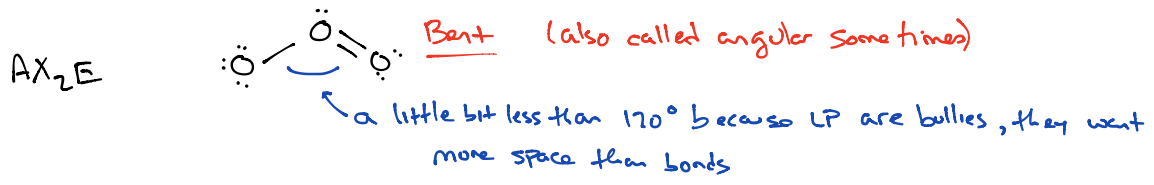 Bent (also called angular sometimes)
AX₂E :Ö–Ö=Ö:
a little bit less than 120° because LP are bullies, they want
more space than bonds